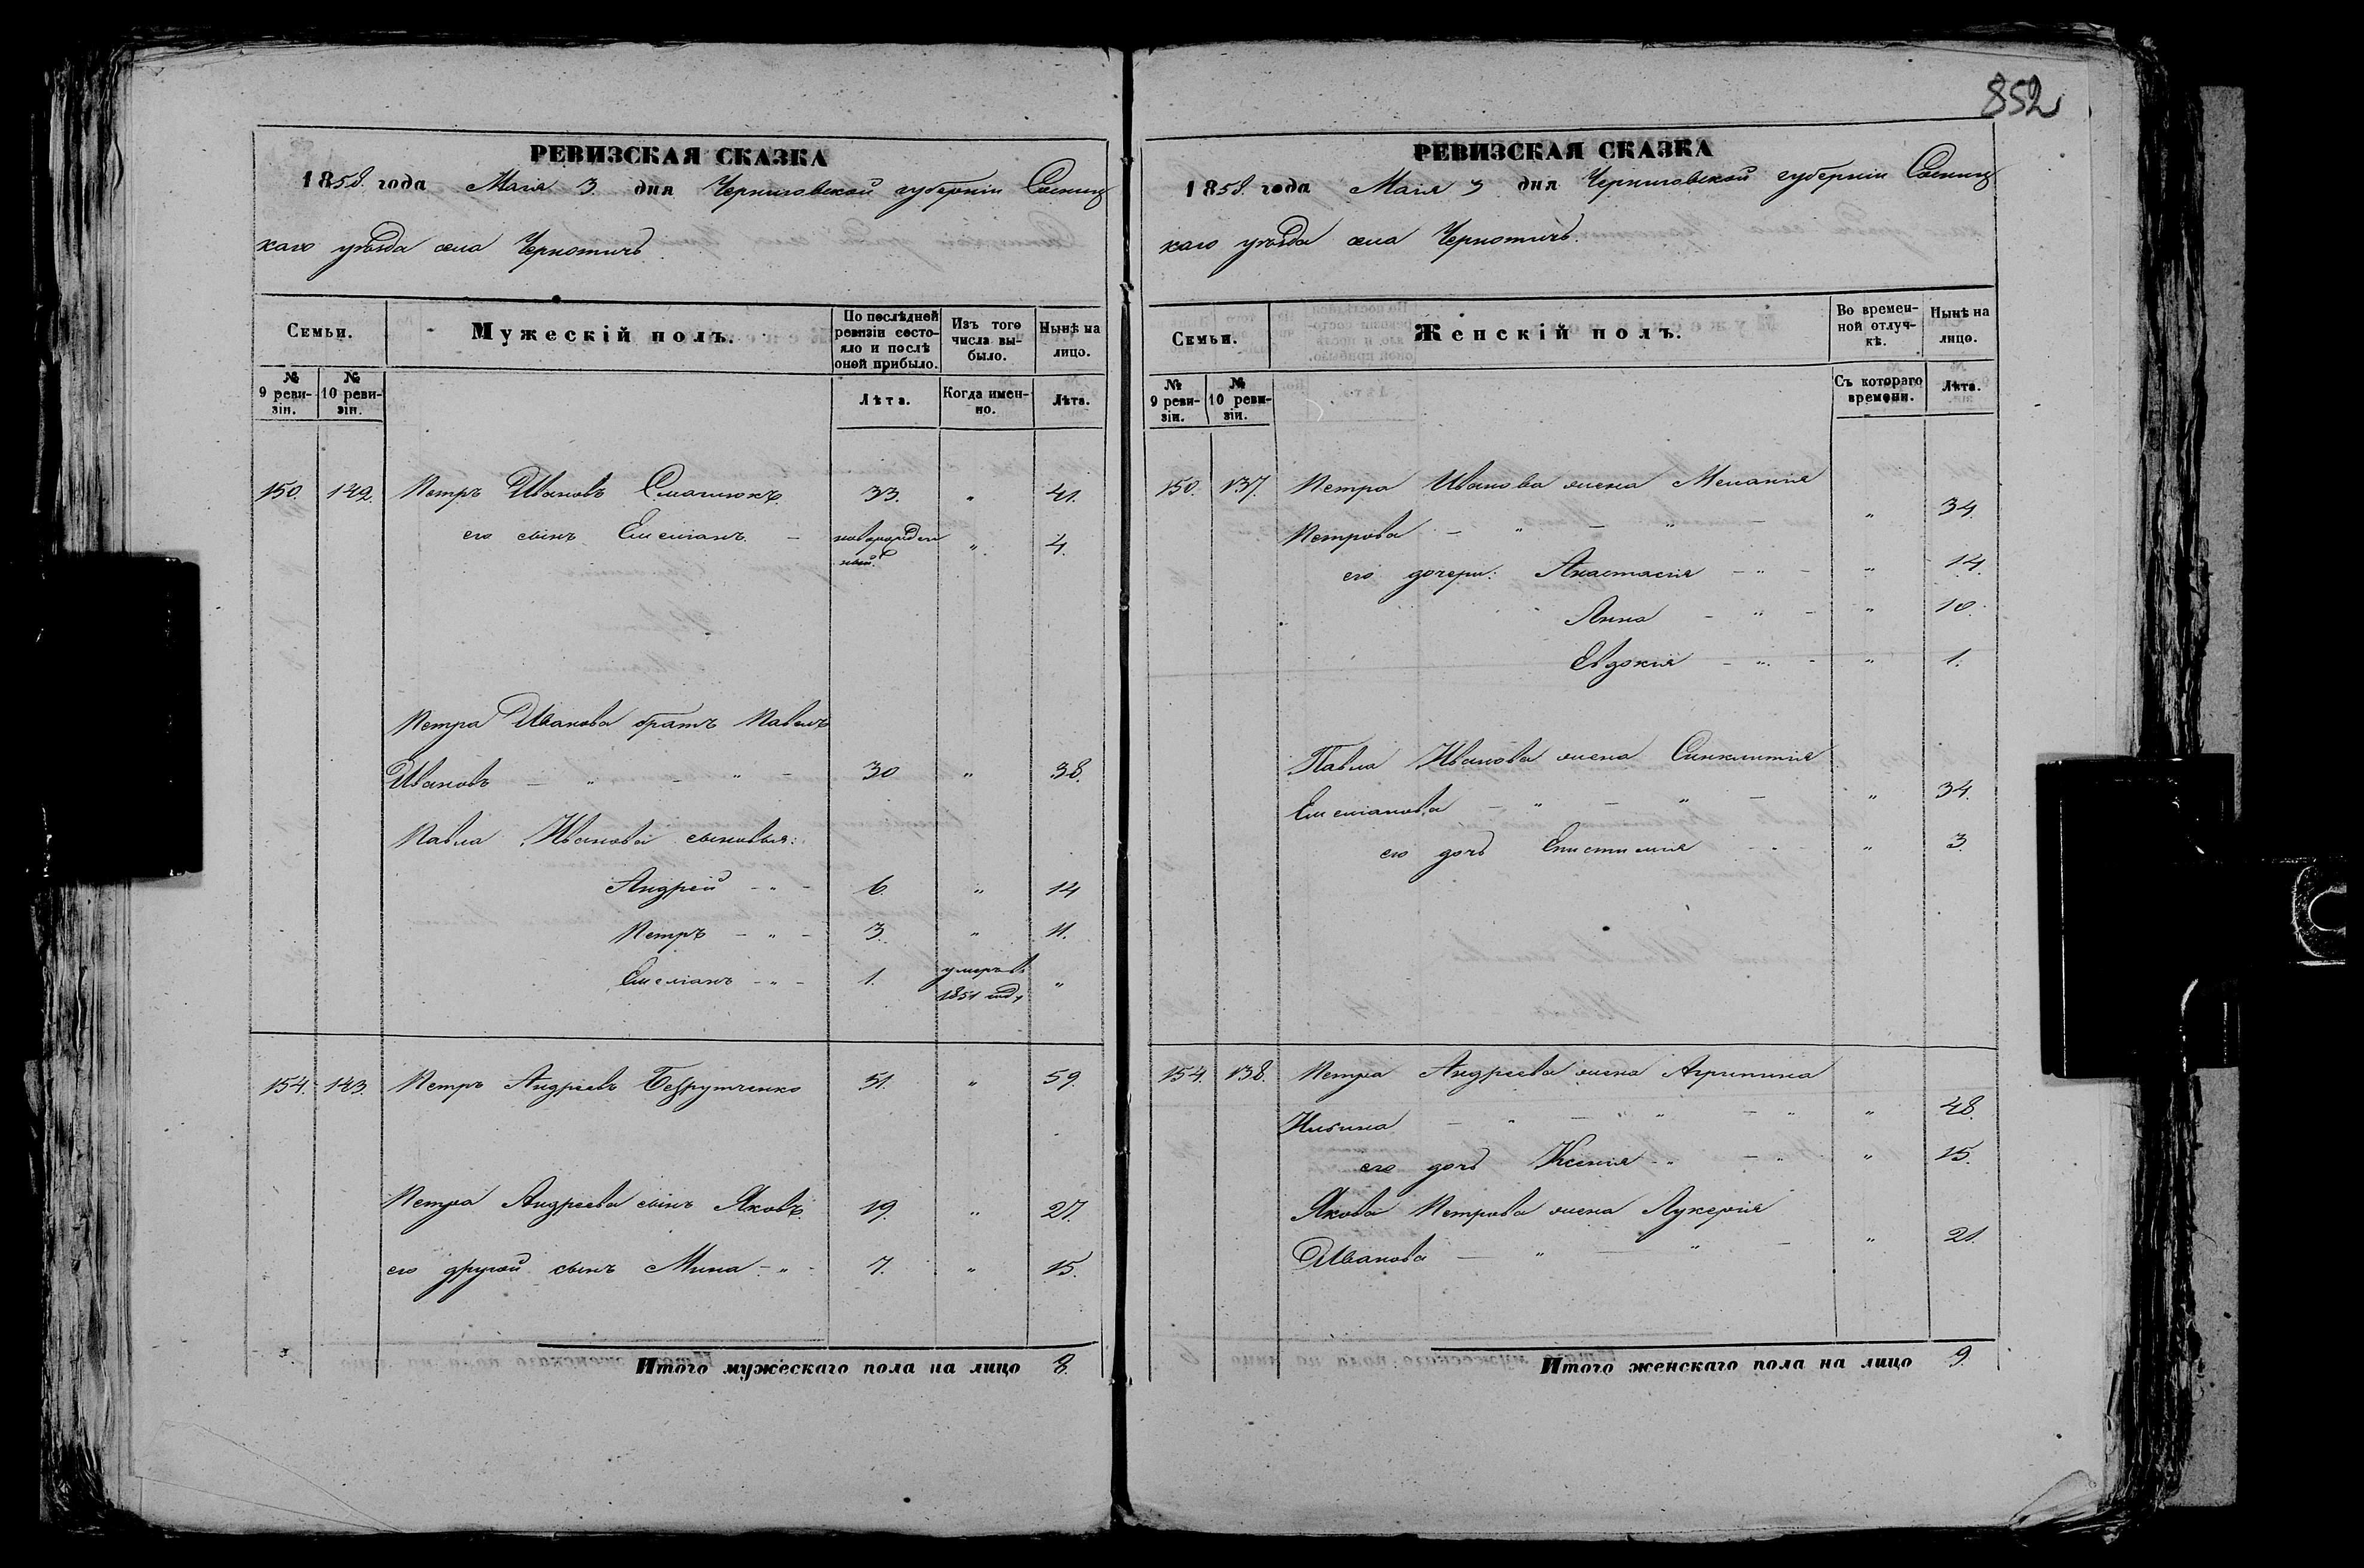 852
РЕВИЗСКАЯ СКАЗКА
1858. года Маія 3 дня Черниговской губерніи Сосниц
каго уѣзда села Чернотичъ
Семьи.
Мужескій полъ.
По послѣдней ревизіи состояло и послѣ оной прибыло.
Изъ того числа выбыло.
Нынѣ на лицо.
№ 9 ревизіи.
№ 10 ревизіи.
Лѣта.
Когда именно.
Лѣта.
150. 122. Петръ Ивановъ 33. " 41.
его сынъ Емеліанъ. - новорожден
ный. " 4.
Петра Иванова братъ Павелъ
Ивановъ - " - " - 30 " 38.
Павла Иванова сыновья:
Андрей - " - 6. " 14
Петръ - " - 3. " 11.
Емеліанъ - " - 1. умеръ въ
1851 году "
154. 123. Петръ Андреевъ 51. " 59.
Петра Андреева сынъ Яковъ. 19. " 27.
его другой сынъ Мина - " - 7. " 15.
Итого мужескаго пола на лицо 8.
РЕВИЗСКАЯ СКАЗКА
1858. года Маія 3 дня Черниговской губерніи Сосниц
каго уѣзда села Чернотичъ.
Семьи.
Женскій полъ.
Во временной отлучкѣ.
Нынѣ на лицо.
№ 9 ревизіи.
№ 10 ревизіи.
Съ котораго времени.
Лѣта.
150. 137. Петра Иванова жена Меланія
Петрова - " - " - " 34.
его дочери: Анастасія - " - " 14.
Анна - " - " 10.
Евдокія - " - " 1.
Павла Иванова жена Синклитія
Емеліанова - " - " - " 34.
его дочь Епистимія - " - " 3.
154. 138. Петра Андреева жена Агрипина
Ильина - " - " - " " 48.
его дочь Ксенія - " - " " 15.
Якова Петрова жена Лукерія
Иванова - " - " - " 21.
Итого женскаго пола на лицо 9.